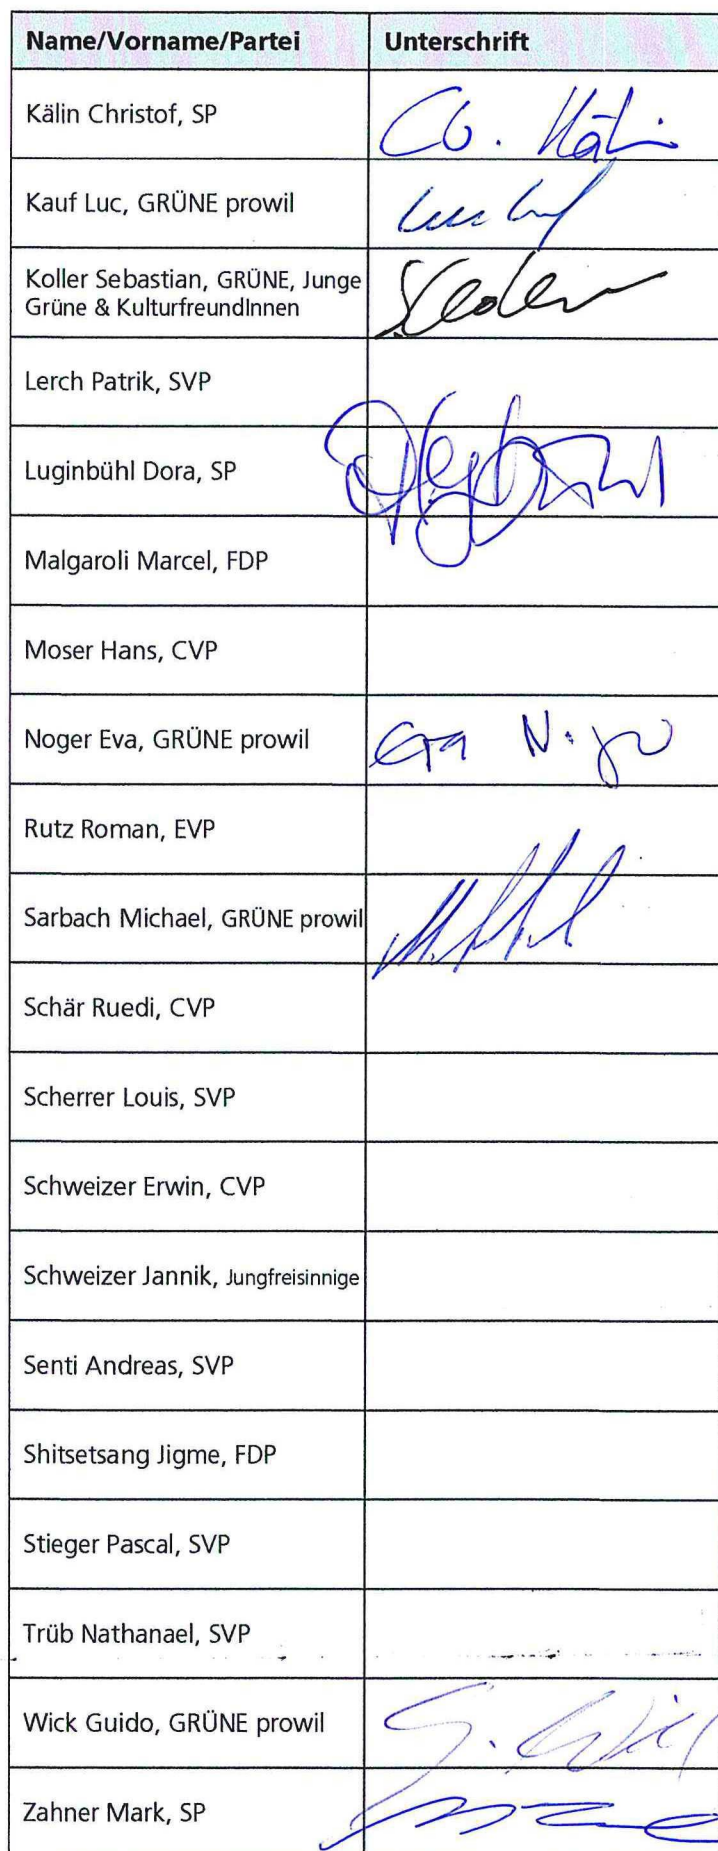 Name/Vorname/Partei Unterschrift
Kälin Christof, SP Ch. Käli
Kauf Luc, GRÜNE prowil
Koller Sebastian, GRÜNE, Junge
Grüne & KulturfreundInnen
Lerch Patrik, SVP
Luginbühl Dora, SP
Malgaroli Marcel, FDP
Moser Hans, CVP
Noger Eva, GRÜNE prowil Eva Noger
Rutz Roman, EVP
Sarbach Michael, GRÜNE prowil
Schär Ruedi, CVP
Scherrer Louis, SVP
Schweizer Erwin, CVP
Schweizer Jannik, Jungfreisinnige
Senti Andreas, SVP
Shitsetsang Jigme, FDP
Stieger Pascal, SVP
Trüb Nathanael, SVP
Wick Guido, GRÜNE prowil G. Wick
Zahner Mark, SP